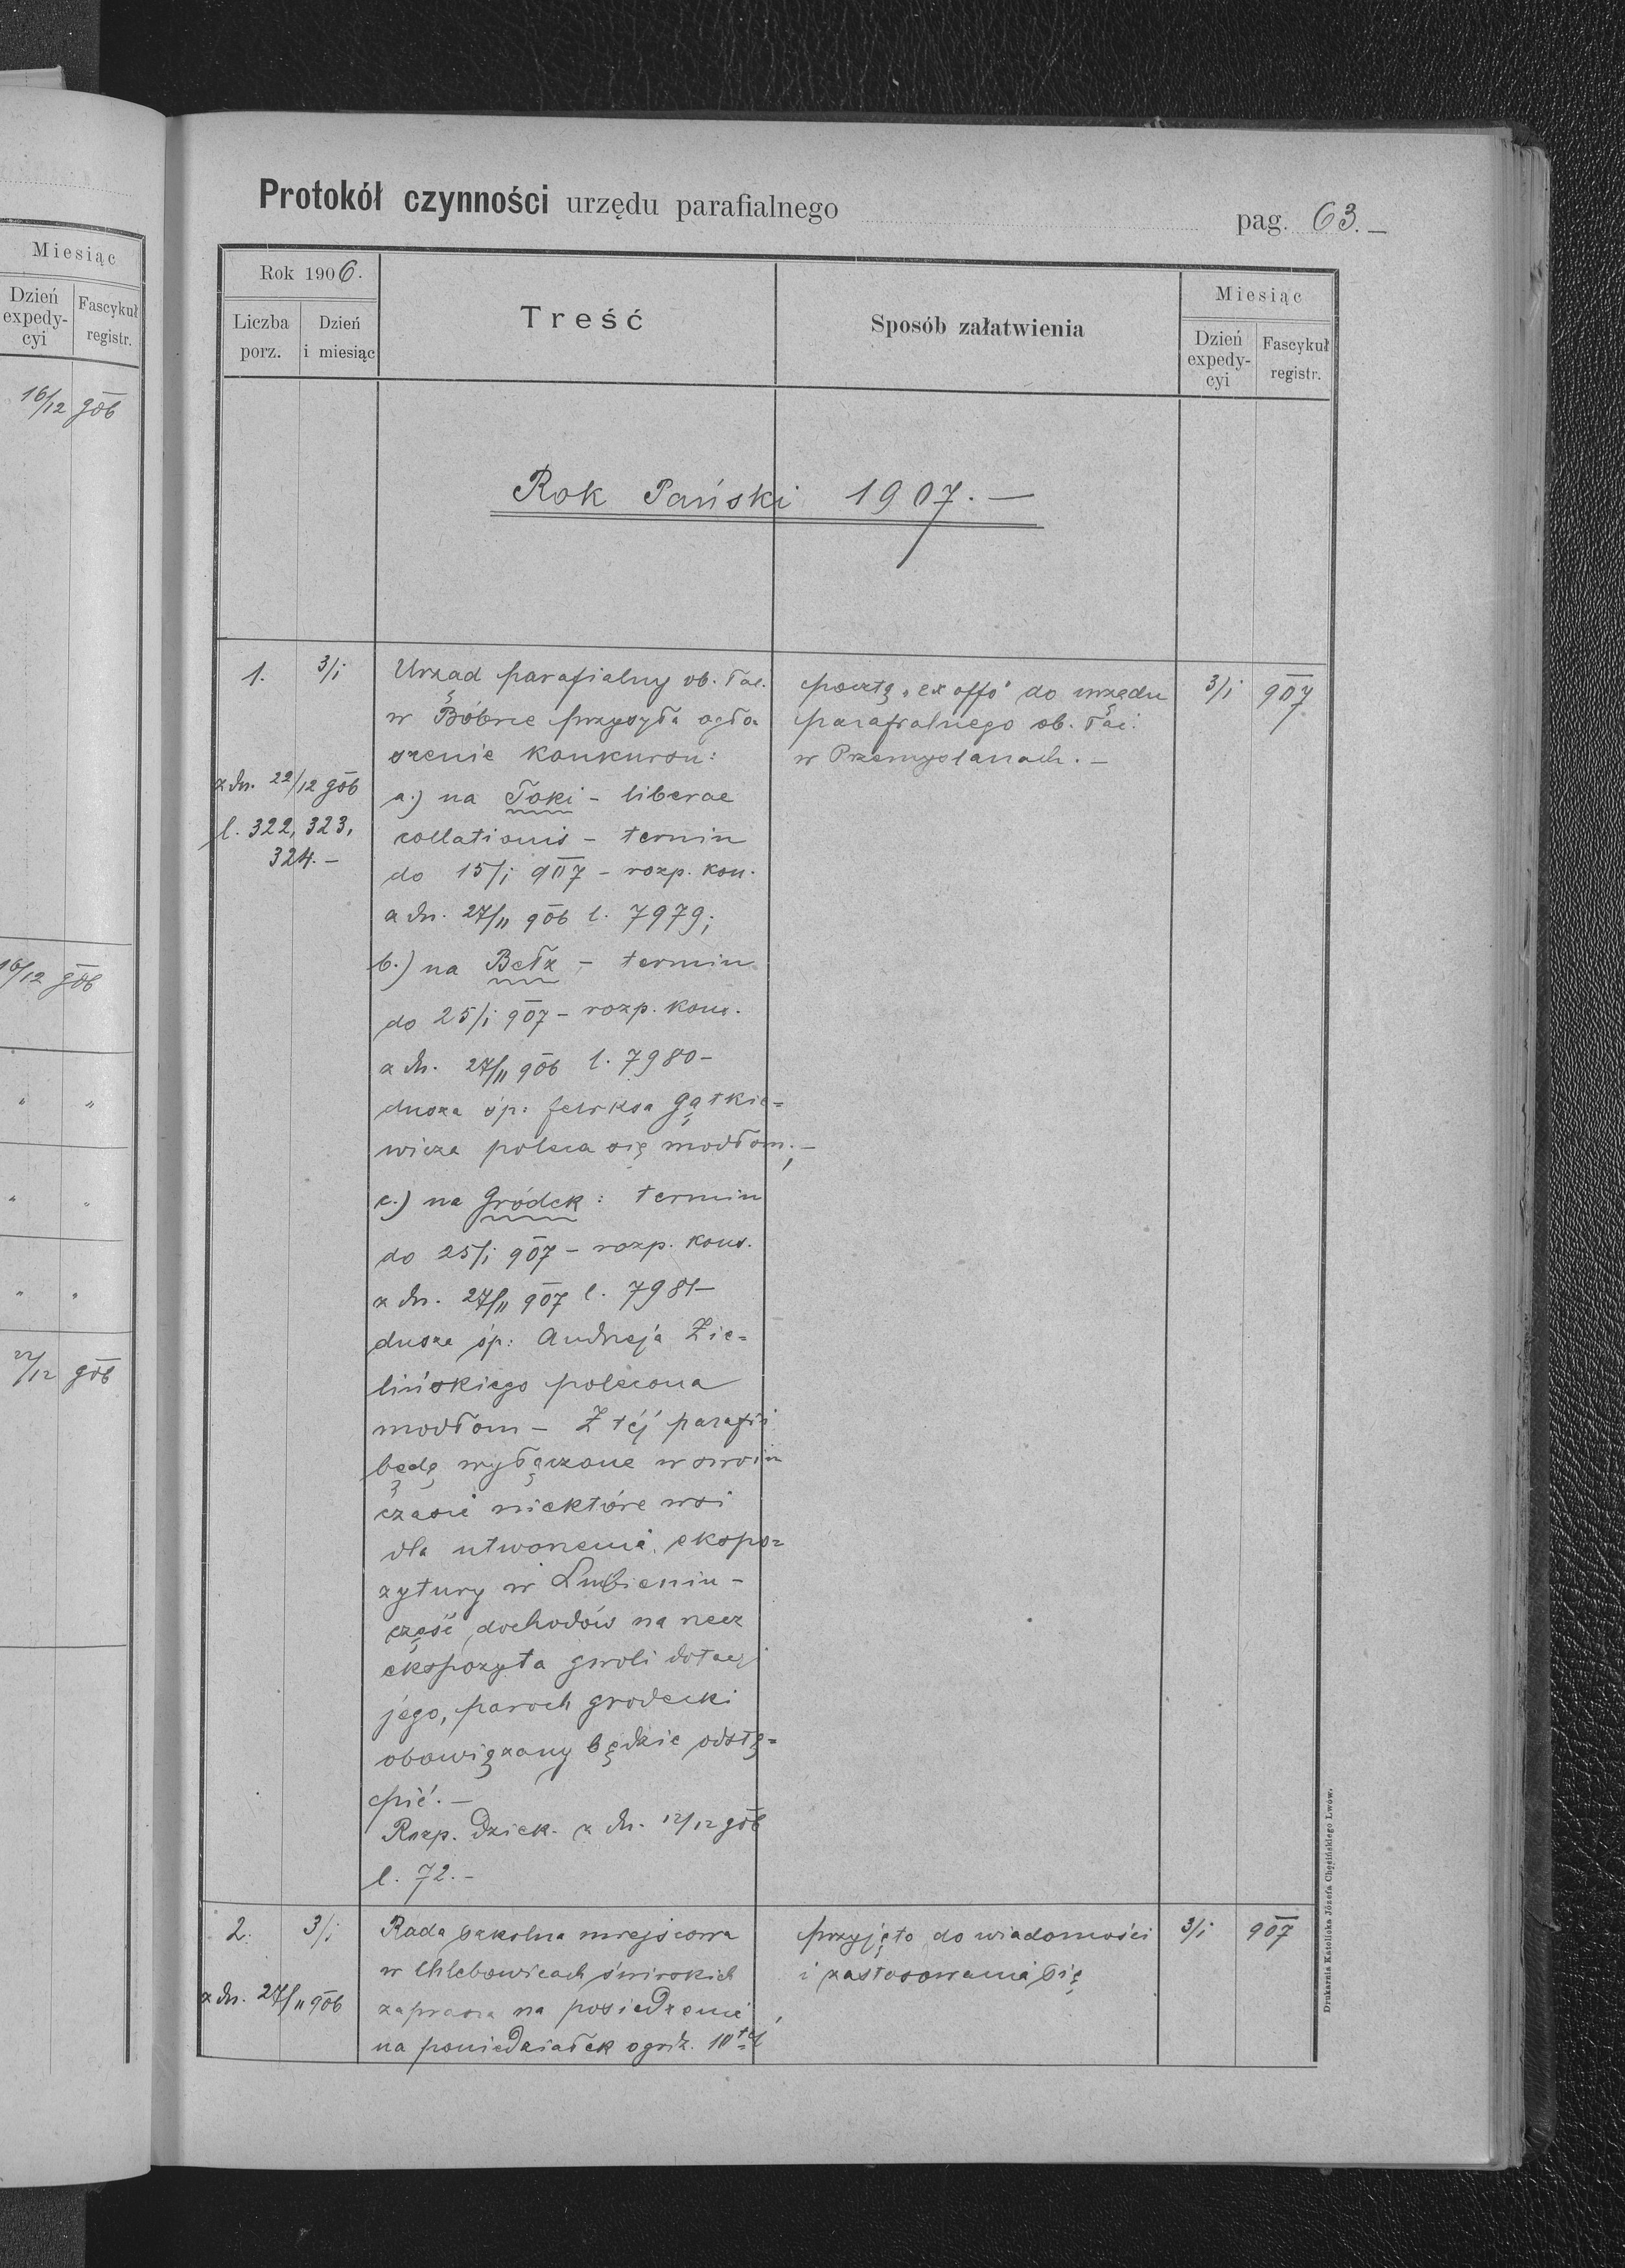 Miesiąc
Dzień expedycyi
Fascykuł registr.
16/12 906
16/12 906
" "
" "
" "
22/12 906
Protokół czynności urzędu parafialnego
pag. 63.–
Rok 1906.
Liczba porz.
Dzień i miesiąc
Treść
Sposób załatwienia
Miesiąc
Dzień expedycyi
Fascykuł registr.
Rok Pański 1907.–
1. 3/i
z dn. 22/12 906
l. 322, 323,
324.–
Urząd parafialny ob. łac.
w Bóbrce przysyła ogło
szenie konkursu:
a.) na Toki – liberae
collationis – termin
do 15/i 907 – rozp. kon.
z dn. 27/11 906 l. 7979;
b.) na Bełz – termin
do 25/i 907 – rozp. kons.
z dn. 27/11 906 l. 7980–
dusza śp. Feliksa Gątkie=
wicza poleca się modłom;–
c.) na Gródek: termin
do 25/i 907 – rozp. kons.
z dn. 27/11 907 l. 7981–
dusza śp. Andrzeja Zie=
lińskiego polecona
modłom – Z téj parafii
będą wyłączone w swoim
czasie niektóre wsi
dla utworzenia ekspo=
zytury w Lubieniu –
część dochodów na rzecz
ekspozyta gwoli dotacyi
jego, paroch grodecki
obowiązany będzie odstą=
pić.–
Rozp. Dziek. z dn. 12/12 906
l. 72.–
pocztą "ex offo" do urzędu
parafialnego ob. łać.
w Przemyślanach.–
3/i 907
2. 3/i
z dn. 27/11 906
Rada szkolna miejscowa
w Chlebowicach świrskich
zaprasza na posiedzenie
na poniedziałek o godz. 10téj
przyjęto do wiadomości
i zastosowania się
3/i 907
Drukarnia Katolicka Józefa Chęcińskiego Lwów.